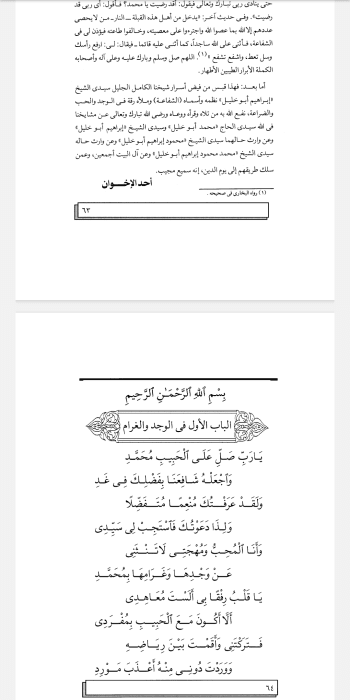 حتى ينادى ربى تبارك وتعالى فيقول: أقد رضيت يا محمد؟ فأقول: أى ربى قد
رضيت». وفى حديث آخر: «يدخل من أهل هذه القبلة ــ النار ــ من لا يحصى
عددهم إلا الله بما عصوا الله واجترءوا على معصيته، وخالفوا طاعته فيؤذن لى فى
الشفاعة، فأثنى على الله ساجداً، كما أثنى عليه قائما ـ فيقال: لى: ارفع رأسك
وسل تعط، واشفع تشفع»(١). اللهم صل وسلم وبارك عليه وعلى آله وأصحابه
الكملة الأبرار الطيبين الأطهار.
أما بعد: فهذا قبس من فيض أسرار شيخنا الكامل الجليل سيدى الشيخ
«إبراهيم أبو خليل» نظمه وأسماه (الشفاعة) وملأه رقة فى الوجد والحب
والضراعة، نفع الله به من تلاه وقرأه ووعاه ورضى الله تبارك وتعالى عن مشايخنا
فى الله سيدى الحاج «محمد أبو خليل» وسيدى الشيخ «إبراهيم أبو خليل»
وعن وارث حالهما سيدى الشيخ «محمود إبراهيم أبو خليل» وعن وارث حاله
سيدى الشيخ «محمد محمود إبراهيم أبو خليل» وعن آل البيت أجمعين، وعمن
سلك طريقهم إلى يوم الدين، إنه سميع مجيب.
أحد الإخــوان
(١) رواه البخارى فى صحيحه.
٦٣
بِسْمِ ٱللَّهِ ٱلرَّحْمَـٰنِ ٱلرَّحِيمِ
الباب الأول فى الوجد والغرام
يَارَبِّ صَلِّ عَلَى الْحَبِيبِ مُحَمَّدٍ
وَاجْعَلْهُ شَافِعَنَا بِفَضْلِكَ فِى غَدِ
وَلَقَدْ عَرَفْتُكَ مُنْعِمًا مُتَفَضِّلًا
وَلِذَا دَعَوْتُكَ فَاسْتَجِبْ لِى سَيِّدِى
وَأَنَا الْمُحِبُّ وَمُهْجَتِى لَا تَنْثَنِى
عَنْ وَجْدِهَا وَغَرَامِهَا بِمُحَمَّدِ
يَا قَلْبُ رِفْقًا بِى أَلَسْتَ مُعَاهِدِى
أَلَّا أَكُونَ مَعَ الْحَبِيبِ بِمُفْرَدِى
فَتَرَكْتَنِى وَأَقَمْتَ بَيْنَ رِيَاضِهِ
وَوَرَدْتَ دُونِى مِنْهُ أَعْذَبَ مَوْرِدِ
٦٤